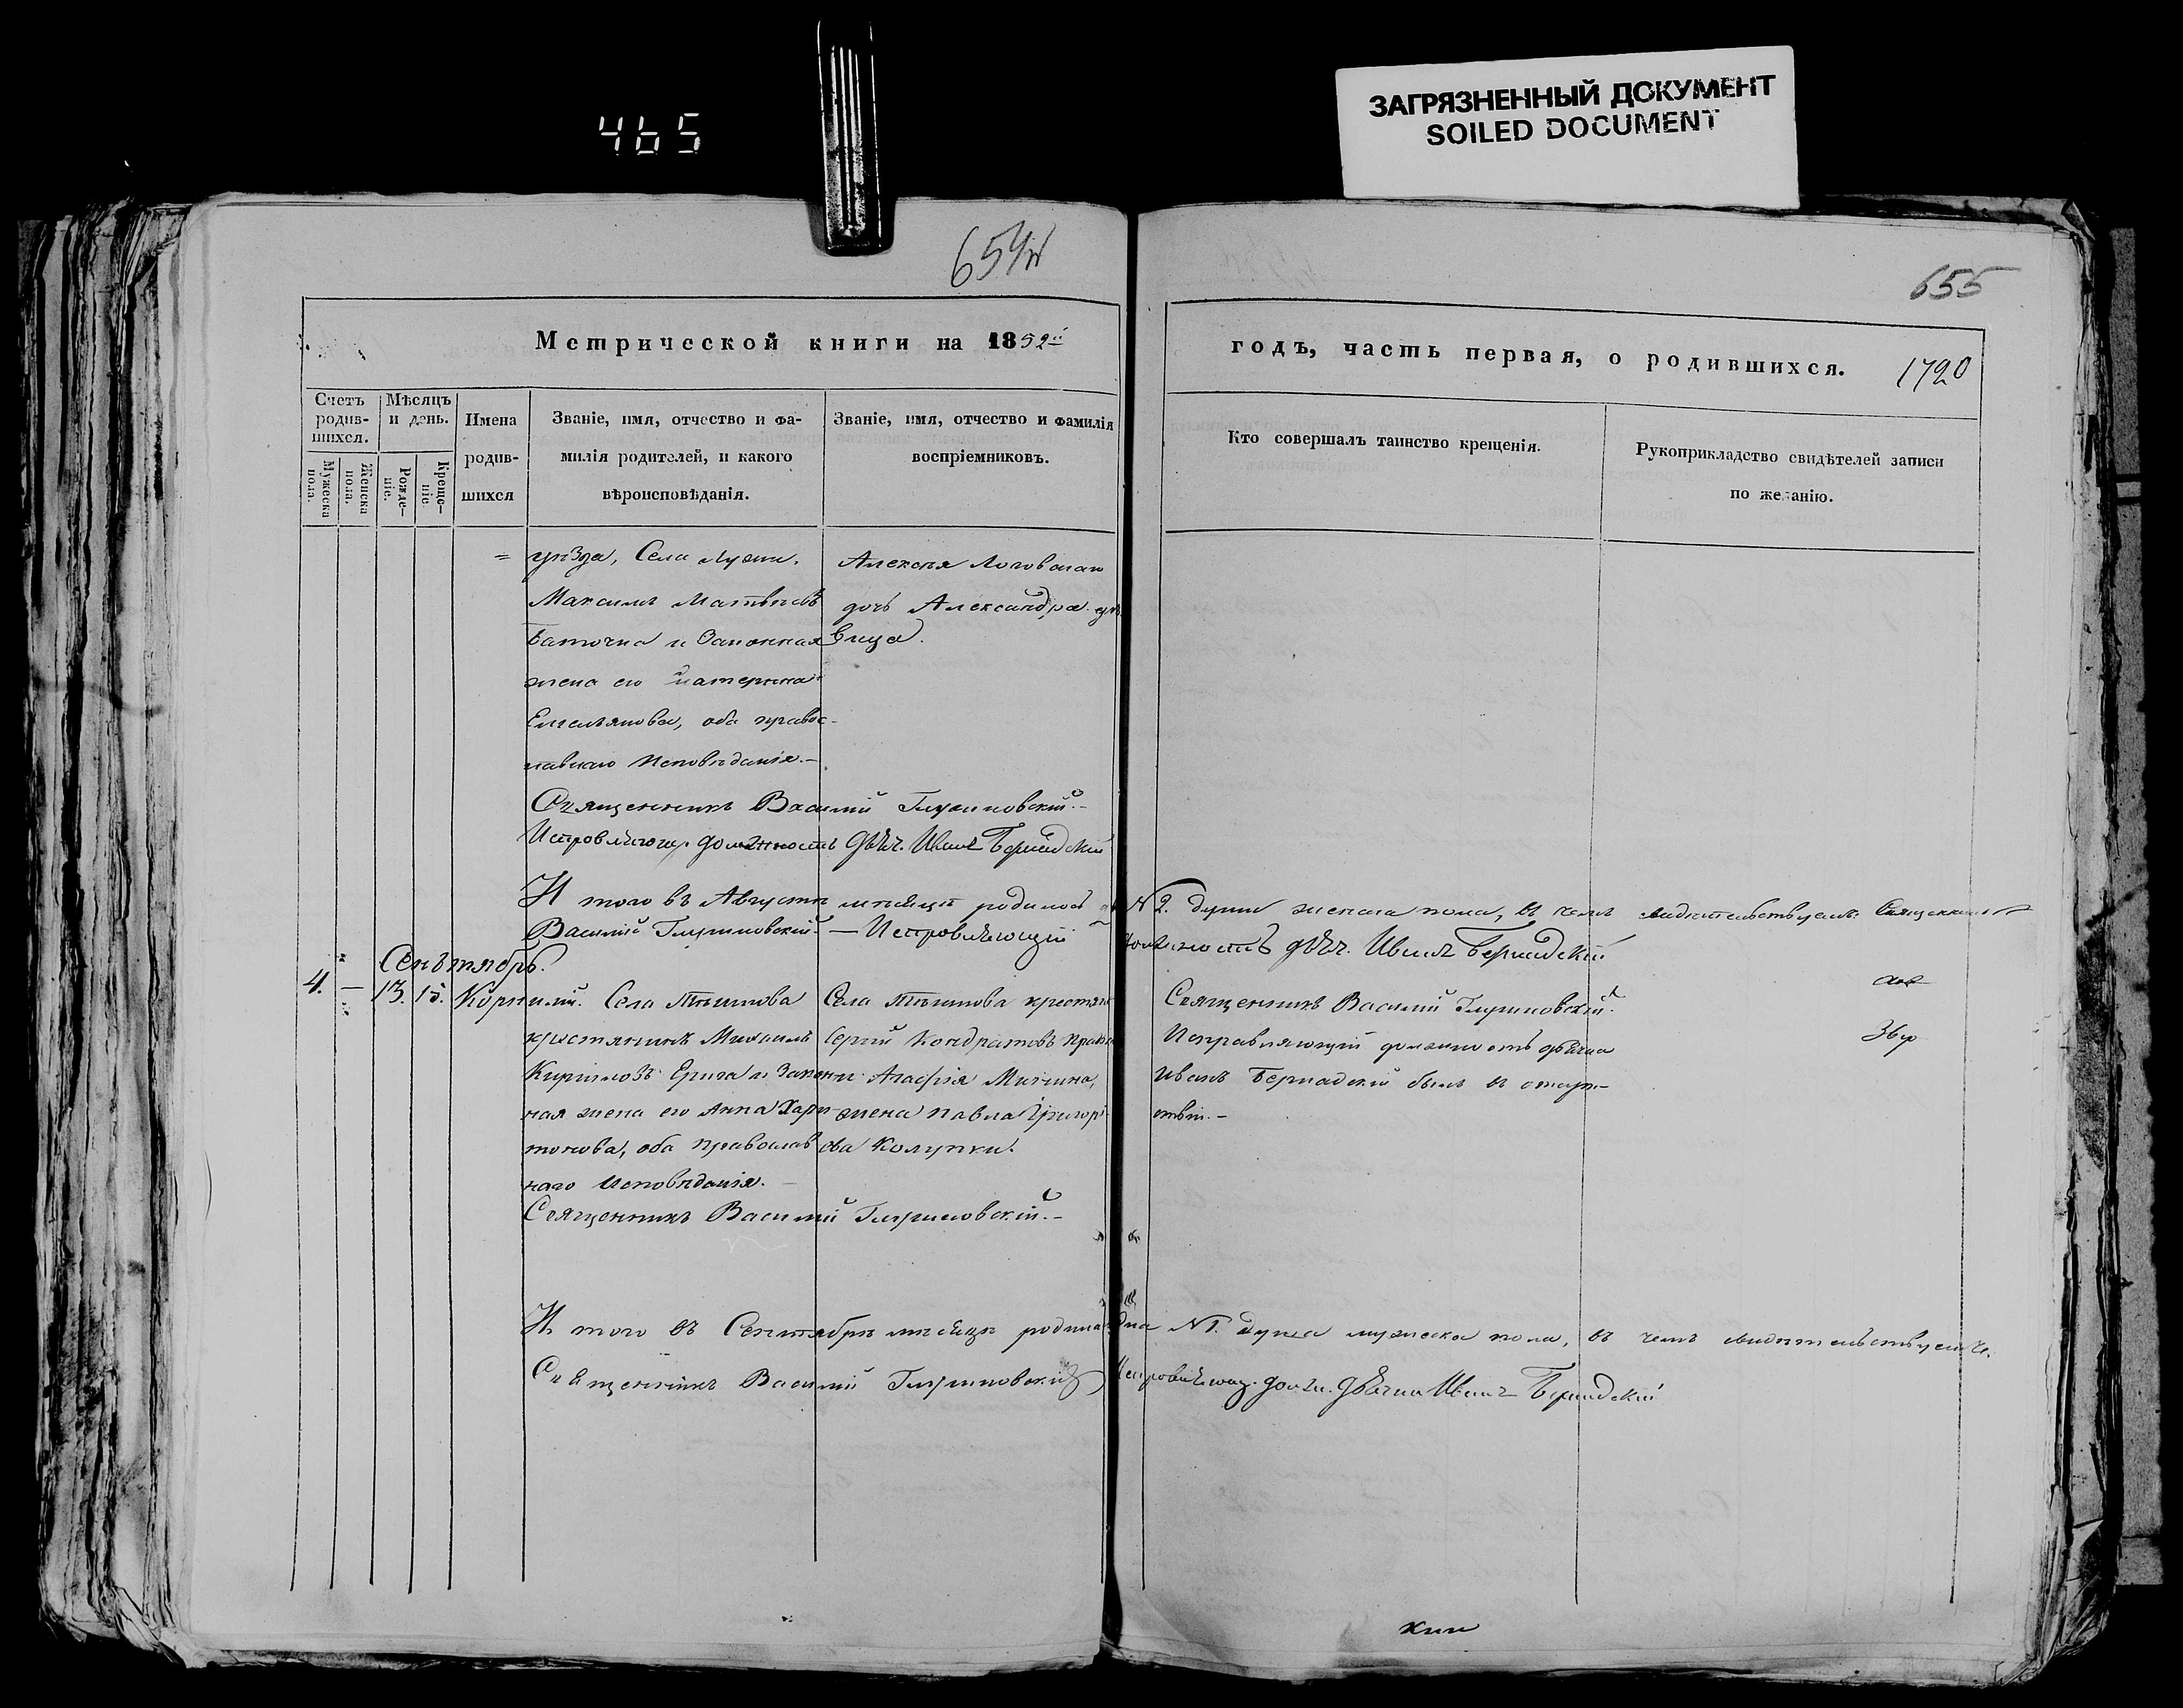 465
ЗАГРЯЗНЕННЫЙ ДОКУМЕНТ
SOILED DOCUMENT
654
655
Метрической книги на 1852й
годъ, часть первая, о родившихся.
1720
Счетъ родившихся.
Мужеска пола.
Женска пола.
Мѣсяцъ и день.
Рожденіе.
Крещеніе.
Имена родившихся
Званіе, имя, отчество и фамилія родителей, и какого вѣроисповѣданія.
Званіе, имя, отчество и фамилія воспріемниковъ.
Кто совершалъ таинство крещенія.
Рукоприкладство свидѣтелей записи по желанію.
= уѣзда, Села
Максимъ Матвѣевъ
и Законная
жена его Катерина
Емельянова, оба правос-
лавнаго исповѣданія.-
Алексѣя
дочь Александра дѣ
вица.
Священникъ Василій Глушановскій.-
должность дьяч. Иванъ Бернадскій
И того въ Августѣ мѣсяцѣ родилось № 2. души женска пола, въ чемъ свидѣтельствуемъ: Священникъ
Василій Глушановскій. — Исправляющій должность дьяч. Иванъ Бернадскій
Сентябрь.
4. — 13. 15. Корнилій.
Села Тѣшнова
крестьянинъ Михаилъ
Кириловъ Ерига и закон-
ная жена его Анна Хари-
тонова, оба православ
наго исповѣданія.
Села Тѣшнова крестьян
Сергій Кондратовъ
и Агафія Митина,
жена Павла Григорі-
ева Колупки.
Священникъ Василій Глушановскій.
Исправляющій должность дьячка
Иванъ Бернадскій былъ въ отсут-
ствіи.-
Священникъ Василій Глушановскій.-
И того въ Сентябрѣ мѣсяцѣ родилась одна № 1. душа мужеска пола, въ чемъ свидѣтельствуемъ.
Священникъ Василій Глушановскій долж. дьячка Иванъ Бернадскій